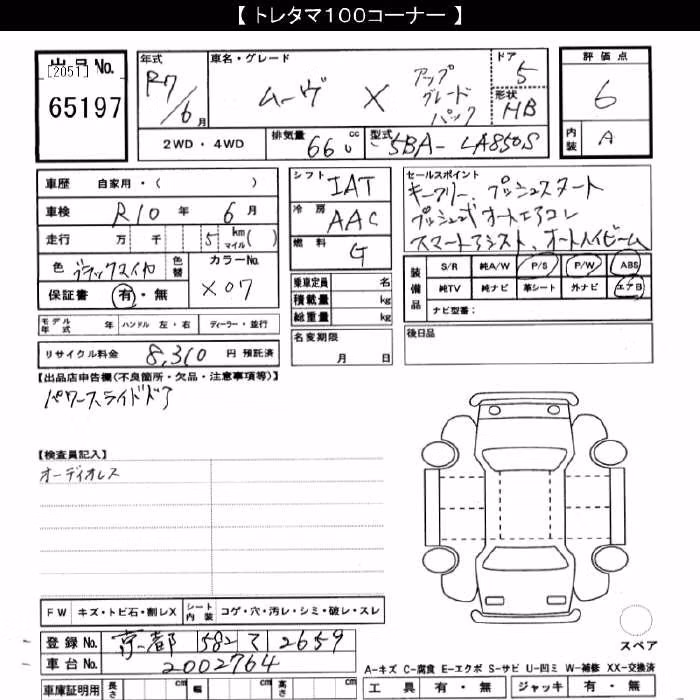 【 トレタマ100コーナー 】
出品No.
[2051]
65197
年式
R7/6月
車名・グレード
ムーヴ X アップグレードパック
ドア
5
形状
HB
評価点
6
内装
A
2WD・4WD
排気量
660 cc
型式
5BA-LA850S
車歴 自家用・( )
車検 R10年 6月
走行 万 千 5 km マイル( )
色 ブラックマイカ
色替
カラーNo.
X07
保証書 有・無
シフト IAT
冷房 AAC
燃料 G
セールスポイント
キーフリー、プッシュスタート
プッシュ式オートエアコン
スマートアシスト、オートハイビーム
装備品
S/R 純A/W P/S P/W ABS
純TV 純ナビ 革シート 外ナビ エアB
ナビ型番:
乗車定員 名
積載量 kg
総重量 kg
モデル年式 年 ハンドル 左・右 ディーラー・並行
名変期限
月 日
後日品
リサイクル料金 8,310 円 預託済
【出品店申告欄(不良箇所・欠品・注意事項等)】
パワースライドドア
【検査員記入】
オーディオレス
FW キズ・トビ石・削レX シート内装 コゲ・穴・汚レ・シミ・破レ・スレ
登録No. 京都 582 て 2659
車台No. 2002764
スペア
A-キズ C-腐食 E-エクボ S-サビ U-凹ミ W-補修 XX-交換済
車庫証明用 長さ cm 幅 cm 高さ cm
工具 有・無 ジャッキ 有・無